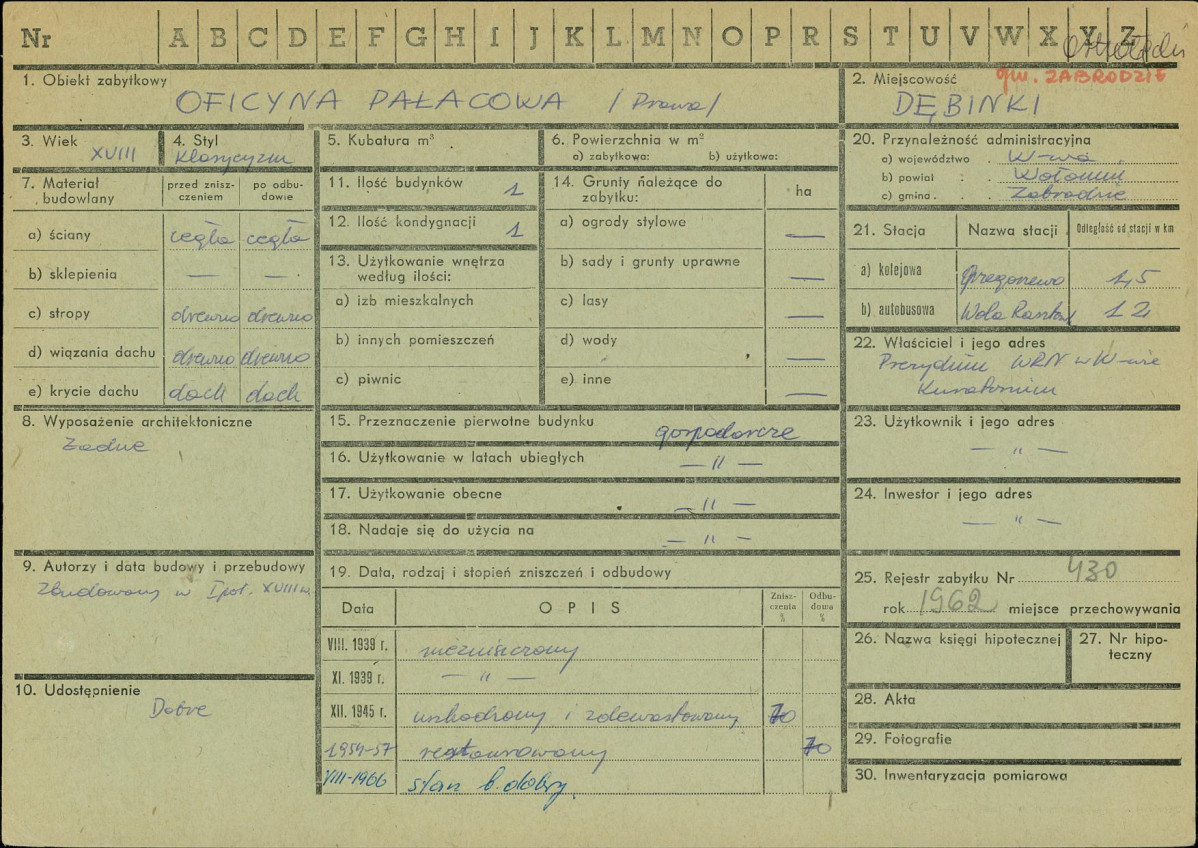 Nr A B C D E F G H I J K L M N O P R S T U V W X Y Z
gm. ZABRODZIE
1. Obiekt zabytkowy
OFICYNA PAŁACOWA /Prawa/
2. Miejscowość
DĘBINKI
3. Wiek
XVIII
4. Styl
Klasycyzm
5. Kubatura m³
6. Powierzchnia w m²
a) zabytkowa: b) użytkowa:
20. Przynależność administracyjna
a) województwo W-wa
b) powiat Wołomin
c) gmina Zabrodzie
7. Materiał budowlany
przed zniszczeniem
po odbudowie
a) ściany cegła cegła
b) sklepienia — —
c) stropy drewno drewno
d) wiązania dachu drewno drewno
e) krycie dachu dach dach
11. Ilość budynków 1
12. Ilość kondygnacji 1
13. Użytkowanie wnętrza
według ilości:
a) izb mieszkalnych
b) innych pomieszczeń
c) piwnic
14. Grunty należące do
zabytku:
ha
a) ogrody stylowe —
b) sady i grunty uprawne —
c) lasy —
d) wody —
e) inne —
21. Stacja Nazwa stacji Odległość od stacji w km
a) kolejowa 1,5
b) autobusowa Wola 12
22. Właściciel i jego adres
Prezydium WRN w W-wie
Kuratorium
8. Wyposażenie architektoniczne
Żadne
15. Przeznaczenie pierwotne budynku gospodarcze
16. Użytkowanie w latach ubiegłych — " —
17. Użytkowanie obecne — " —
18. Nadaje się do użycia na — " —
23. Użytkownik i jego adres
— " —
24. Inwestor i jego adres
— " —
9. Autorzy i data budowy i przebudowy
Zbudowany w I poł. XVIII w.
10. Udostępnienie
Dobre
19. Data, rodzaj i stopień zniszczeń i odbudowy
Data OPIS Zniszczenia % Odbudowa %
VIII. 1939 r. niezniszczony
XI. 1939 r. — " —
XII. 1945 r. uszkodzony i zdewastowany 70
1954-57 restaurowany 70
VIII-1966 stan b. dobry.
25. Rejestr zabytku Nr 430
rok 1962 miejsce przechowywania
26. Nazwa księgi hipotecznej
27. Nr hipoteczny
28. Akta
29. Fotografie
30. Inwentaryzacja pomiarowa